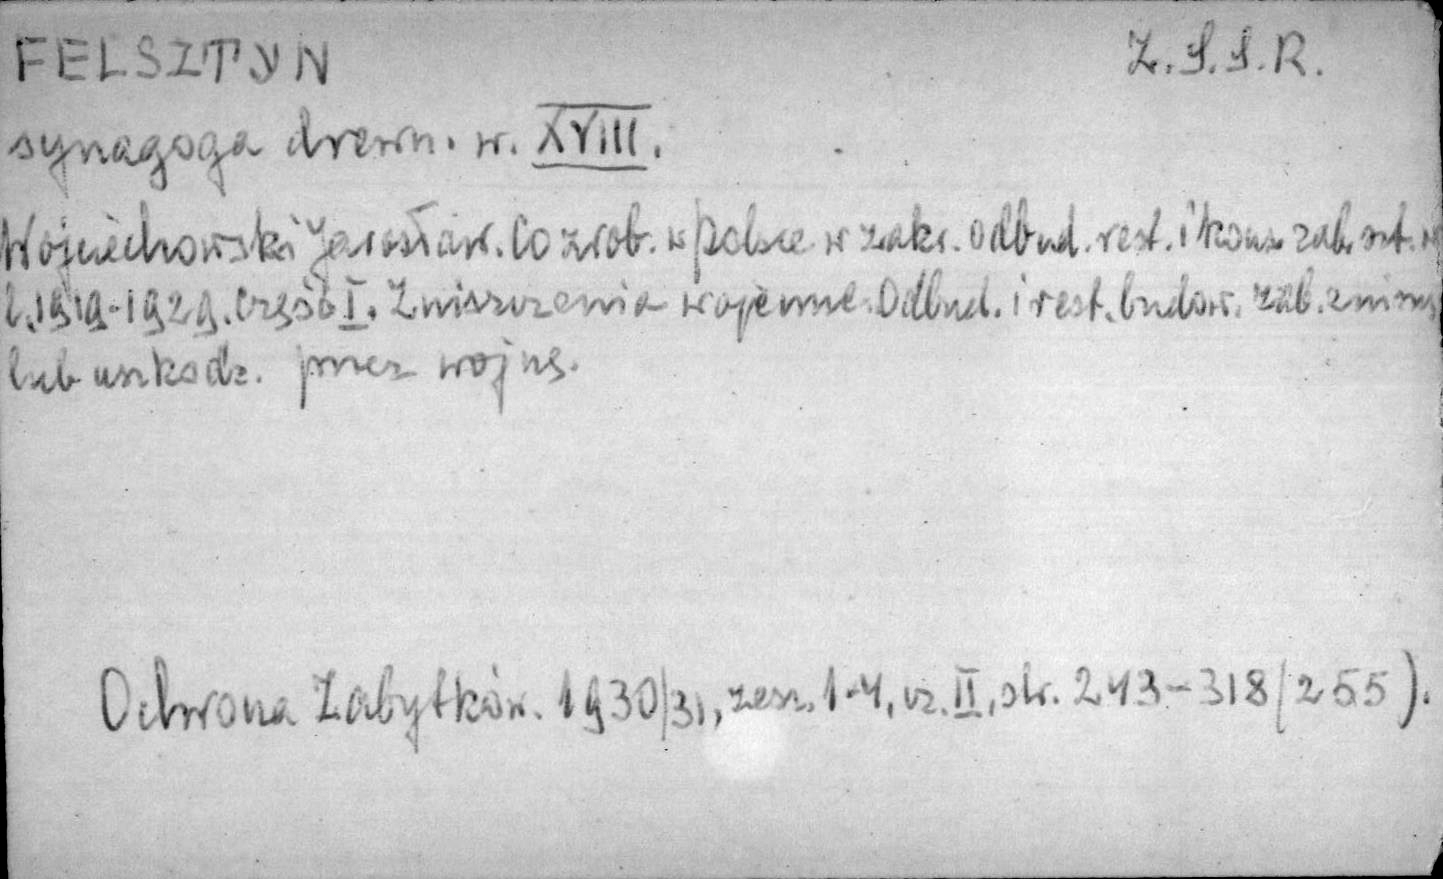 FELSZTYN Z.S.S.R.
synagoga drewn. w. XVIII.
Wojciechowski Jarosław. Co zrob. w Polsce w zakr. odbud. rest. i kons. zab. szt. w
l. 1919-1929. Część I. Zniszczenia wojenne. Odbud. i rest. budow. zab. zniszcz
lub uszkodz. przez wojnę.
Ochrona Zabytków. 1930/31, zesz. 1-4, cz. II, str. 243-318 (255).